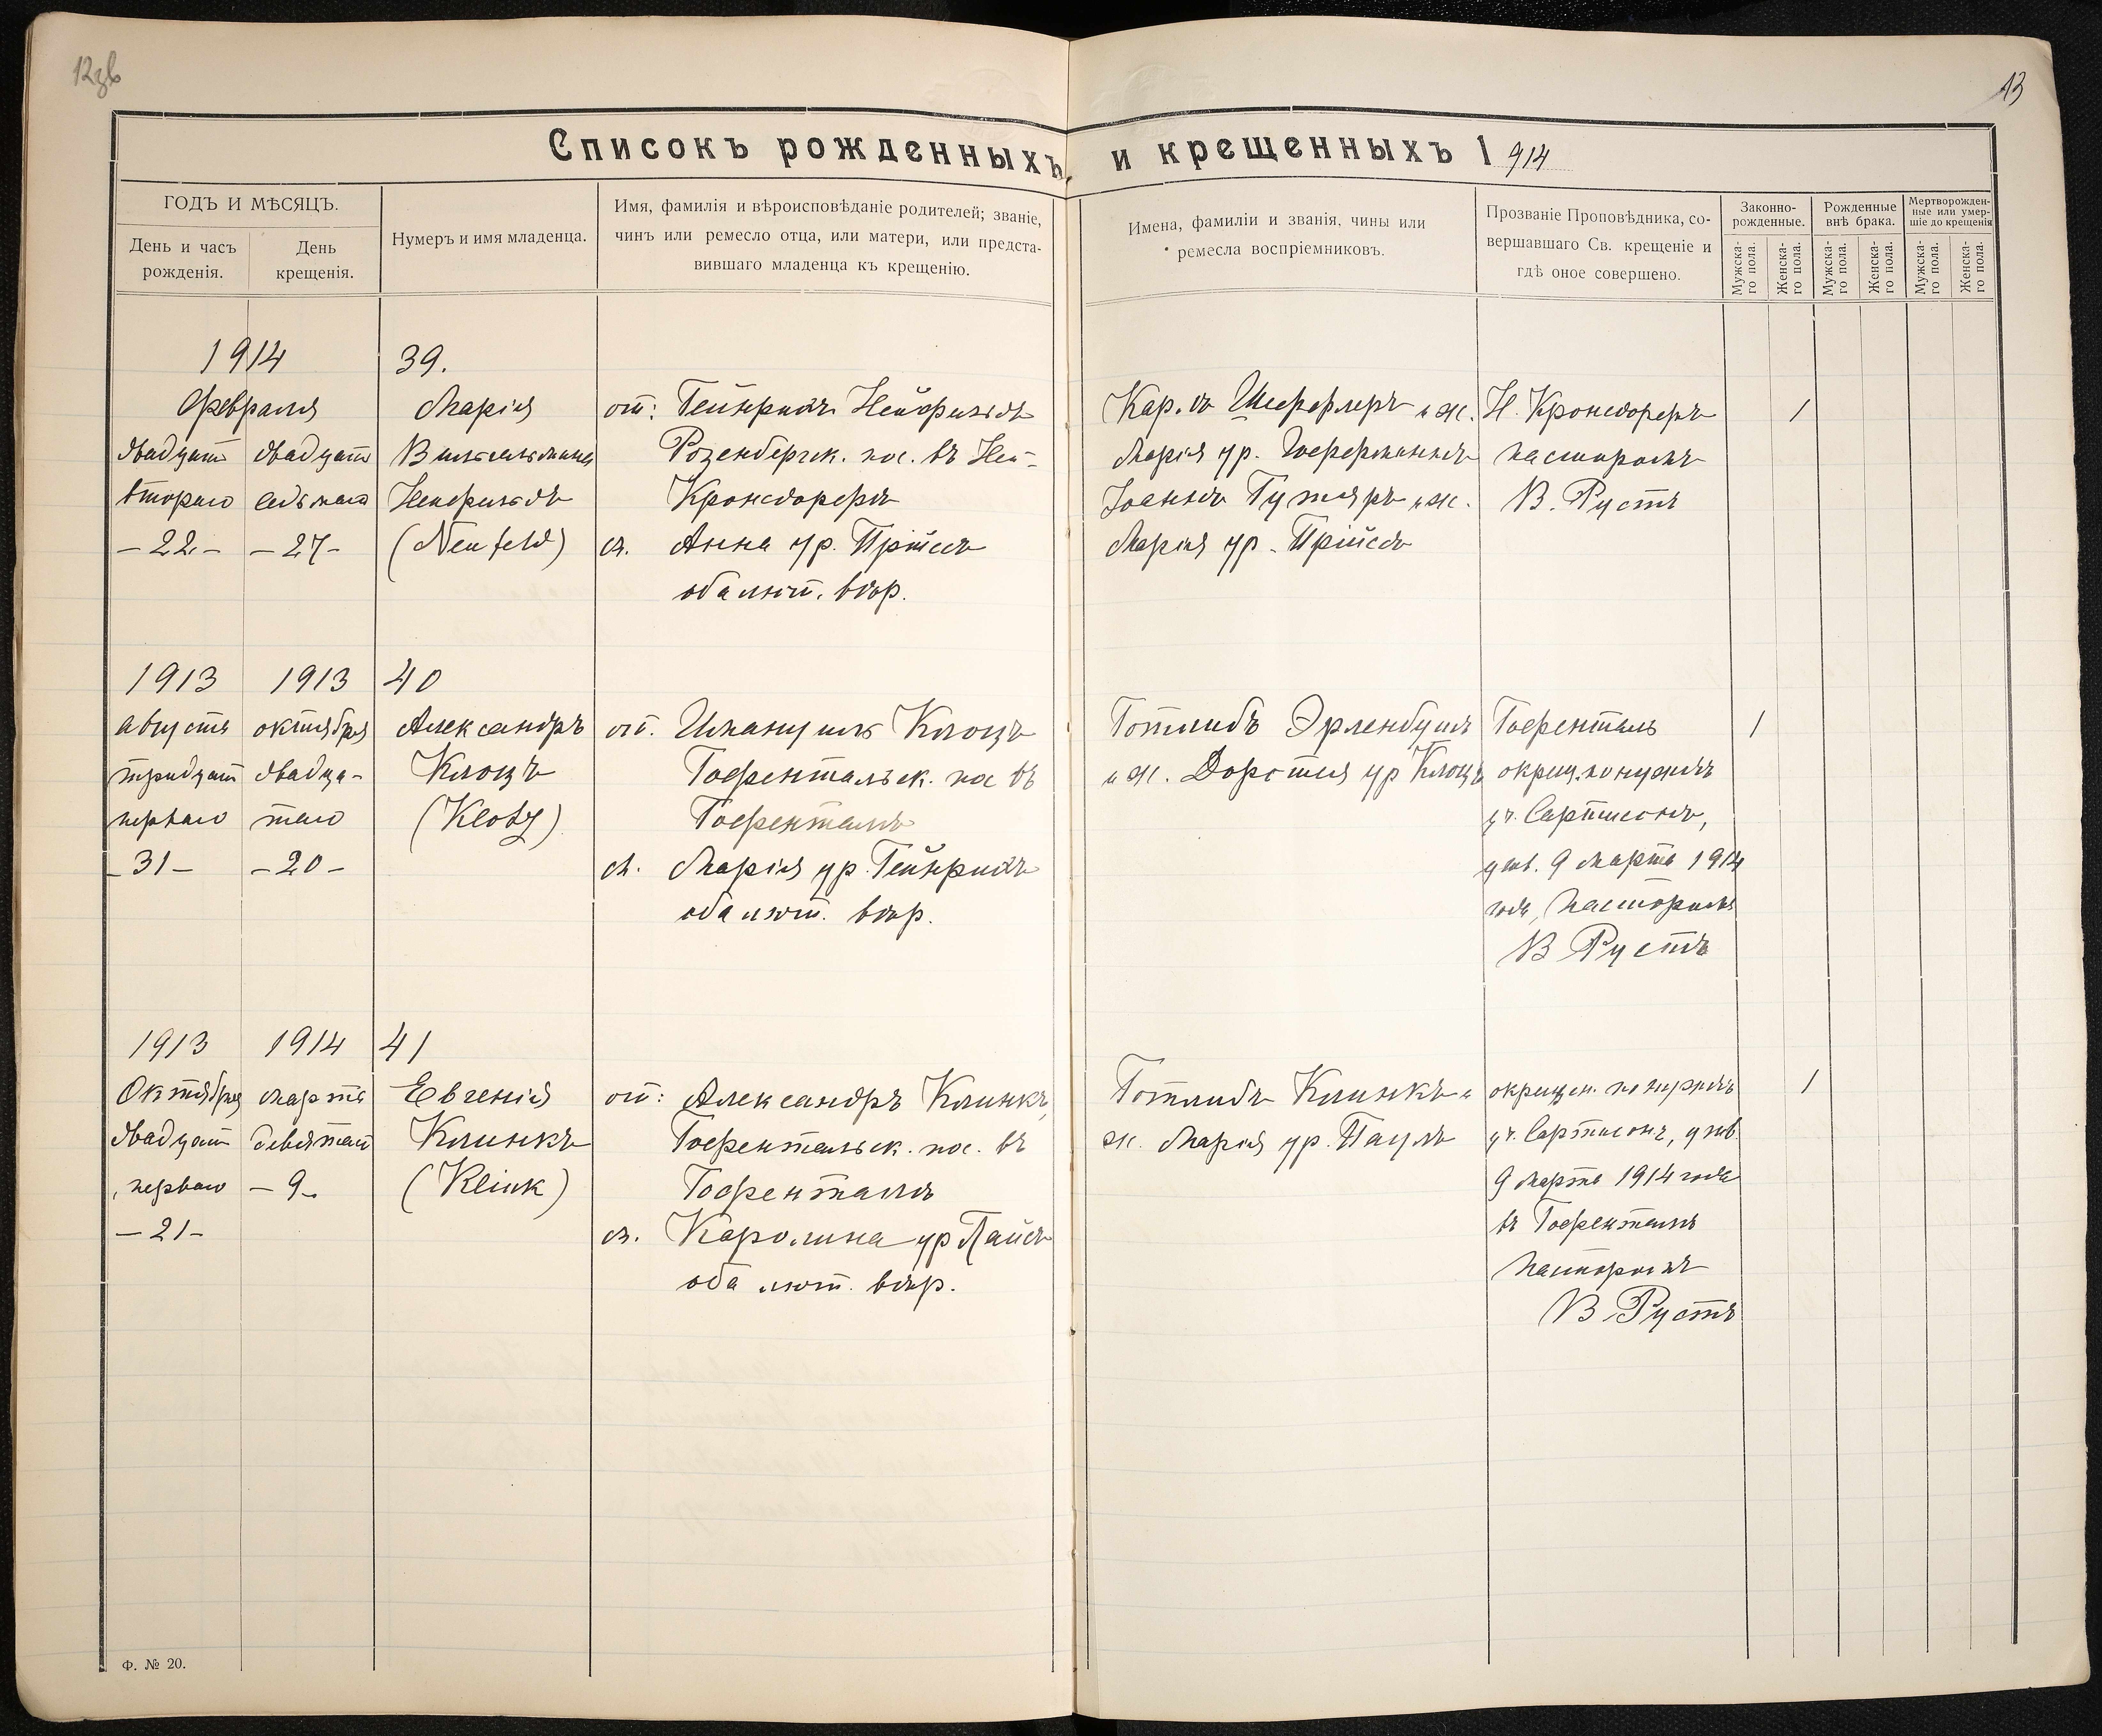 12зв
13
Списокъ рожденныхъ и крещенныхъ 1914
ГОДЪ И МѢСЯЦЪ.
День и часъ рожденія.
День крещенія.
Нумеръ и имя младенца.
Имя, фамилія и вѣроисповѣданіе родителей; званіе,
чинъ или ремесло отца, или матери, или предста-
вившаго младенца къ крещенію.
Имена, фамиліи и званія, чины или
ремесла воспріемниковъ.
Прозваніе Проповѣдника, со-
вершавшаго Св. крещеніе и
гдѣ оное совершено.
Законно-
рожденные.
Рожденные
внѣ брака.
Мертворожден-
ные или умер-
шіе до крещенія
Мужска-
го пола.
Женска-
го пола.
Мужска-
го пола.
Женска-
го пола.
Мужска-
го пола.
Женска-
го пола.
1914
Февраля
двадцать
второго
- 22 -
двадцать
седьмого
- 27 -
39.
Марія
Вильгельмина
Нейфельдъ
(Neufeld)
от: Гейнрихъ Нейфельдъ
Розенбергск. пос. въ Ней-
Кронсдорфѣ
м. Анна ур. Прійсъ
оба лют. вѣр.
Шеффлеръ и ж.
Марія ур. Гофферманнъ
Іоаннъ и ж.
Марія ур. Прійсъ
Н. Кронсдорфъ
пасторомъ
В. Рустъ
1
1913
августа
тридцать
перваго
- 31 -
1913
октября
двадца-
таго
- 20 -
40
Александръ
Клоцъ
(Klotz)
от. Имануилъ Клоцъ
Гофентальск. пос. въ
Гофенталѣ
м. Марія ур. Гейнрихъ
оба лют. вѣр.
Готлибъ Эрленбушъ
и ж. Доротея ур. Клоцъ
Гофенталь
окрещ. по нуждѣ
уч. Сартисонъ,
утв. 9 Марта 1914
года, пасторомъ
В Рустъ
1
1913
Октября
двадцать
перваго
- 21 -
1914
Марта
девятаго
- 9 -
41
Евгенія
Клинкъ
(Klink)
от: Александръ Клинкъ,
Гофентальск. пос. въ
Гофенталѣ
м. Каролина ур.
оба лют. вѣр.
Готлибъ Клинкъ и
ж. Марія ур. Пауль
окрещен. по нуждѣ
уч. Сартисонъ, утв.
9 Марта 1914 года
въ Гофенталѣ
пасторомъ
В. Рустъ
1
Ф. № 20.